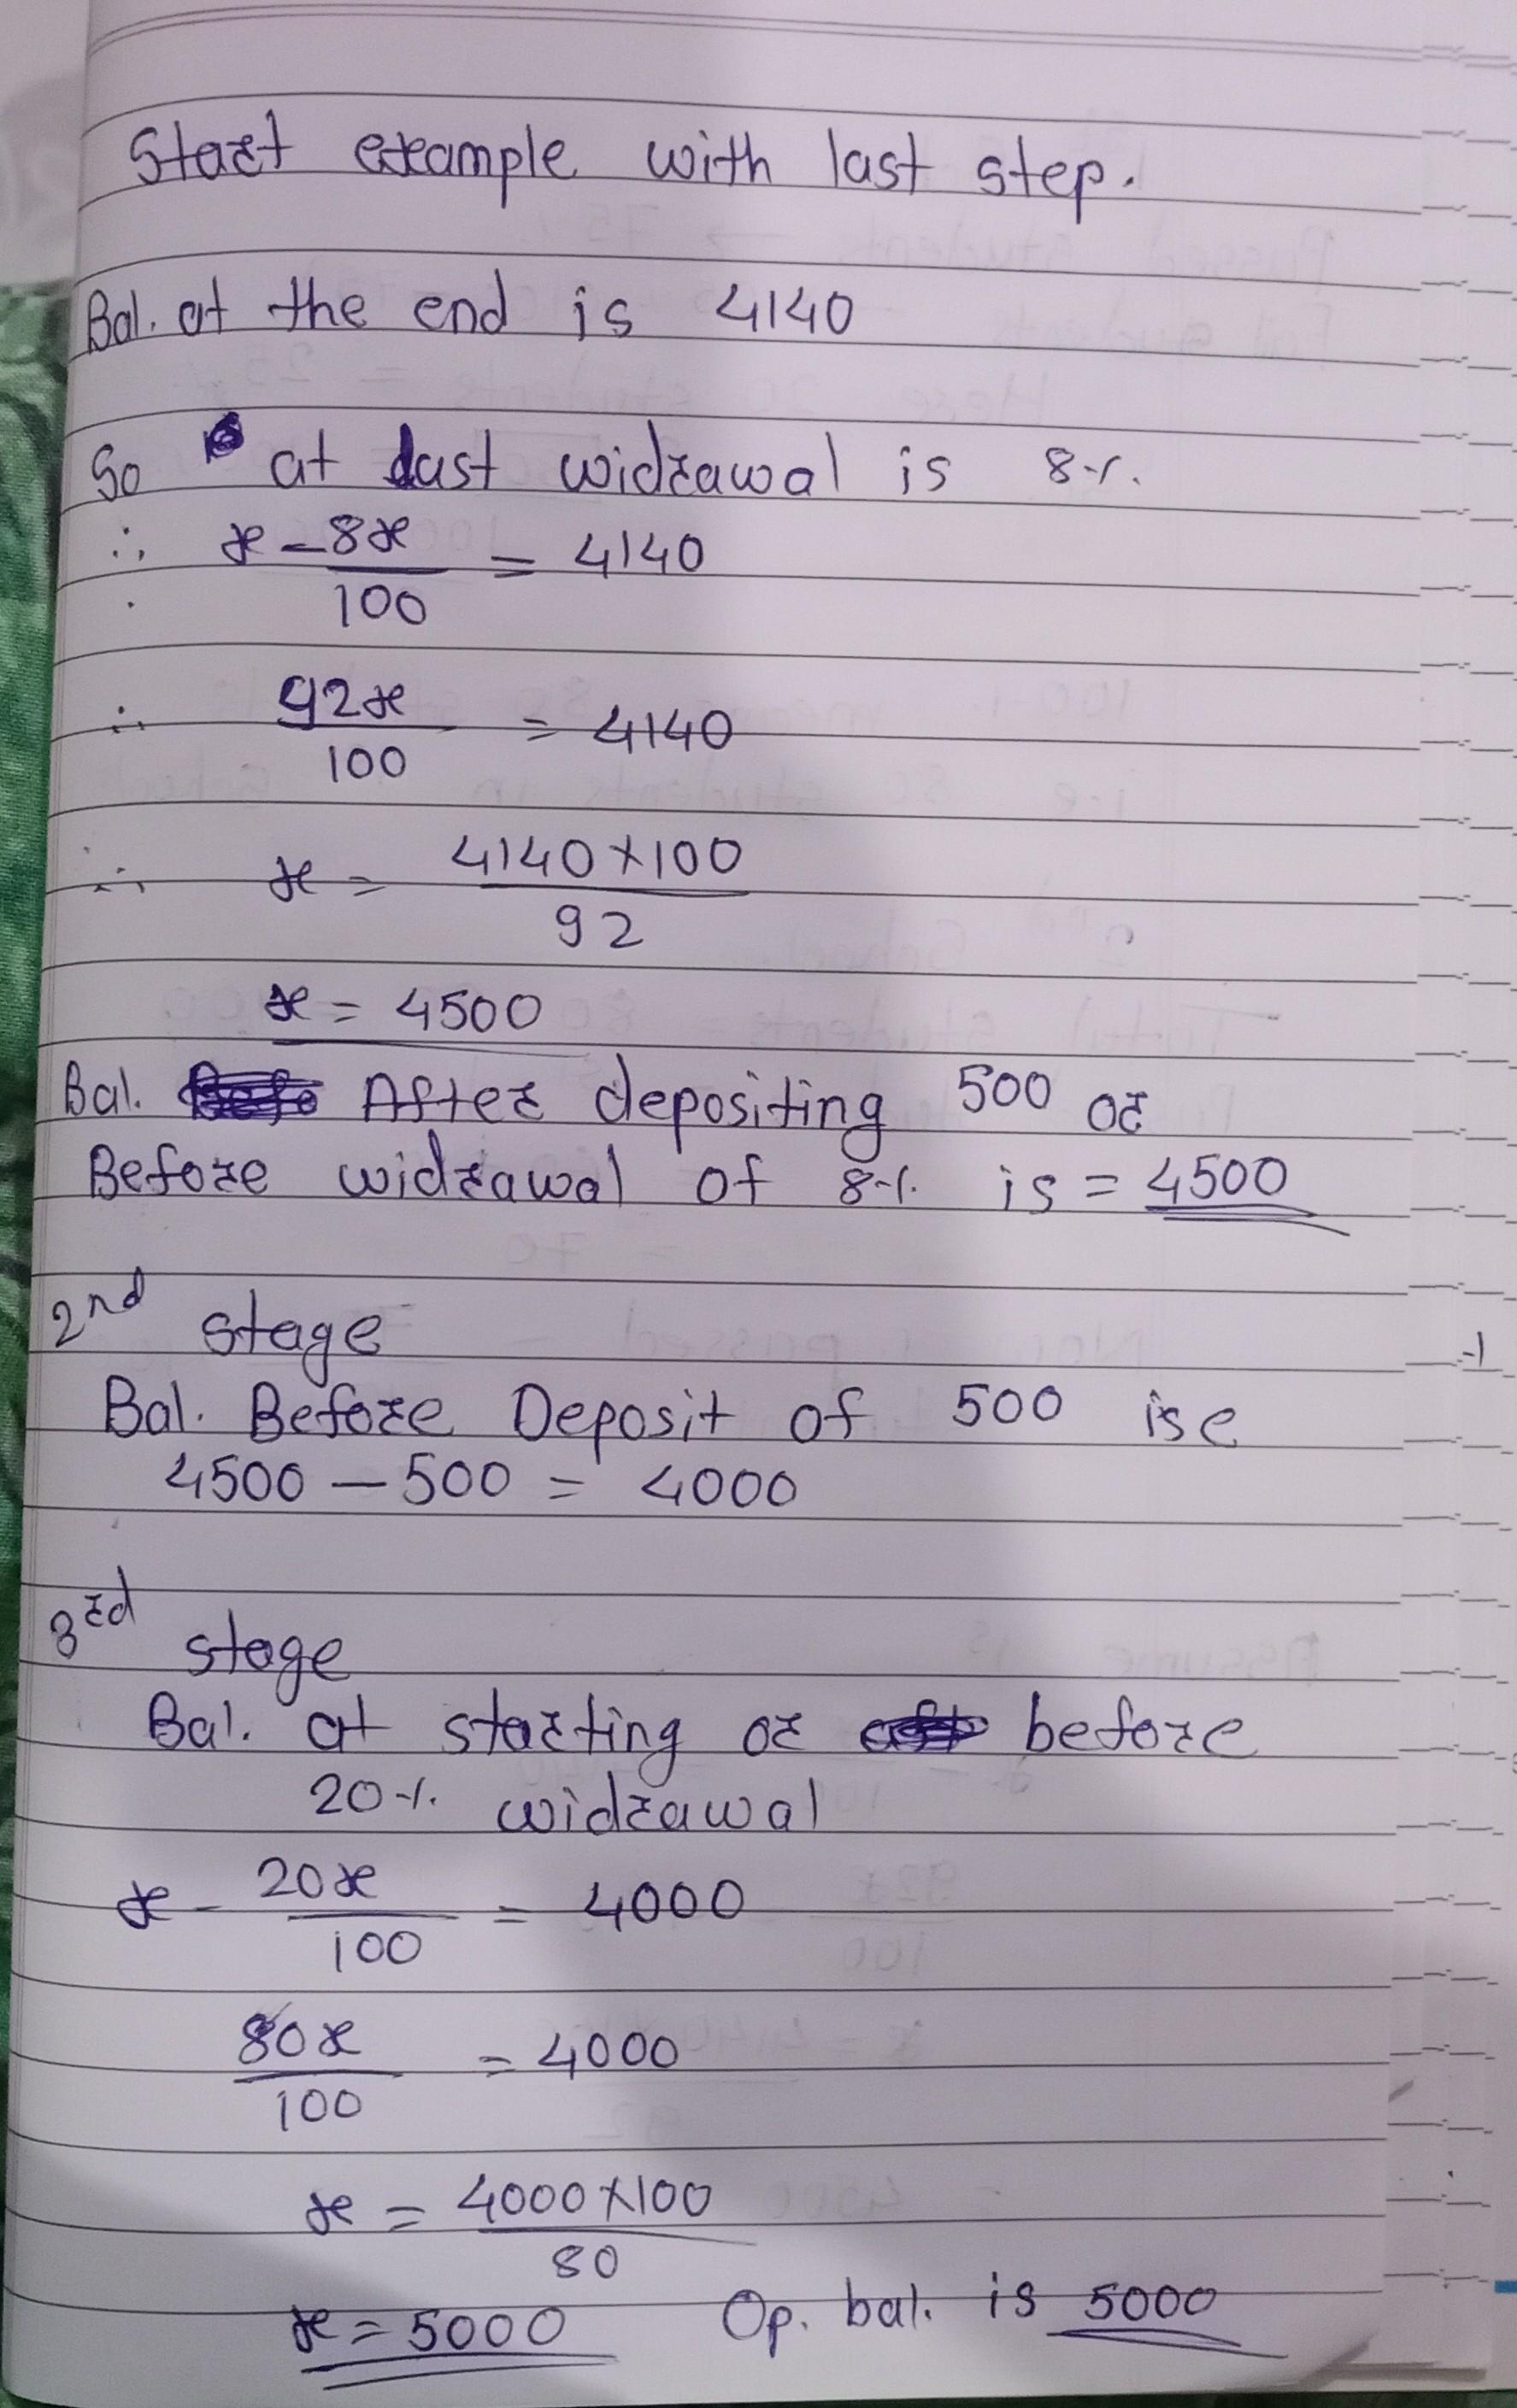 Start example with last step.
Bal. at the end is 4140
So at last widrawal is 8%.
∴ x - 8x/100 = 4140
∴ 92x/100 = 4140
∴ x = 4140×100/92
x = 4500
Bal. After depositing 500 or
Before widrawal of 8% is = 4500
2nd stage
Bal. Before Deposit of 500 is
4500 - 500 = 4000
3rd stage
Bal. at starting or before
20% widrawal
x - 20x/100 = 4000
80x/100 = 4000
x = 4000×100/80
x = 5000 Op. bal. is 5000